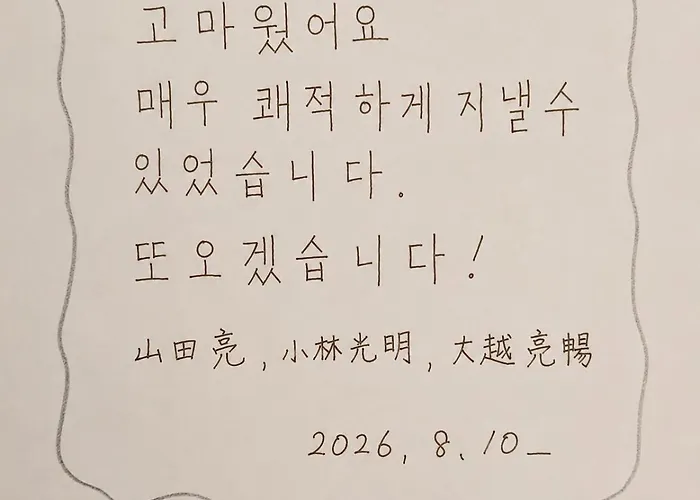 고마웠어요
매우 쾌적하게 지낼수
있었습니다.
또 오겠습니다!
山田亮, 小林光明, 大越亮暢
2026, 8. 10_